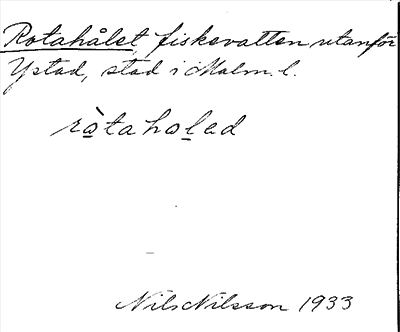 Rotahålet, fiskevatten utanför
Ystad, stad i Malm. l.
ràtaholed
Nils Nilsson 1933